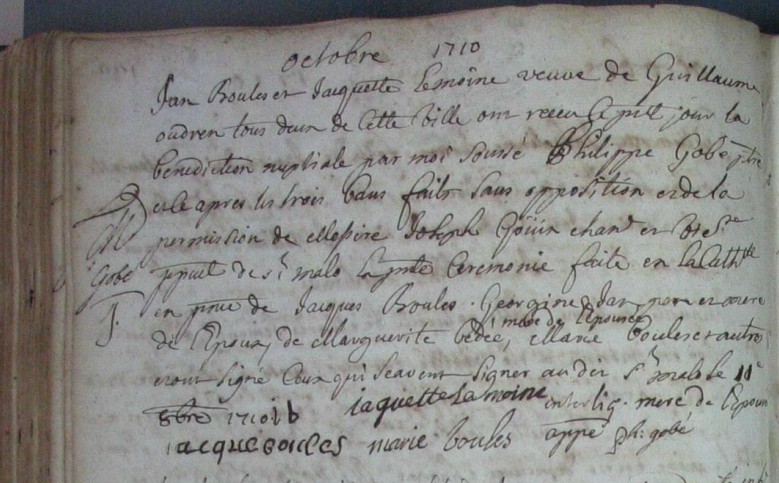 octobre 1710
Jan Boules et Jacquette Lemoine veuve de Guillaume
oudren tous deux de Cette Ville ont receu Ce pnt jour la
benediction nuptiale par moi soussé Philippe Gobé ptre
et le apres les trois bans faits sans opposition et de la
M permission de Messire Joseph Goüin chan et
Gobé de St malo la pnte Ceremonie faite en la Cathlle
en pnce de Jacques Boules. Georgine Jan pere et mere
mere de l'Epousee
de l'Epoux, de Marguerite bedee, Marie boules et autres
et ont signé Ceux qui scavent signer au dit St malo le 11e
8bre 1710 jb jaquette Lemoine interlig. mere de l'Epouse
jacque boules marie boules appé ph: gobé